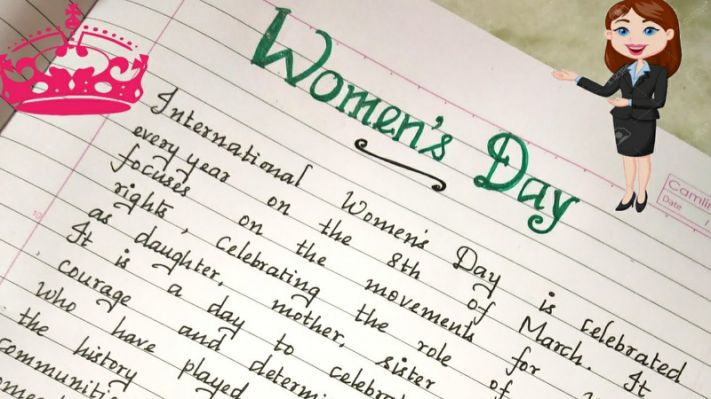 Women's Day
Camlin
Date
International Women's Day is celebrated
every year on the 8th of March. It
focuses on the movements for
rights, celebrating the role of
as daughter, mother, sister
It is a day to celebra
courage and determi
who have played
the history
communiti